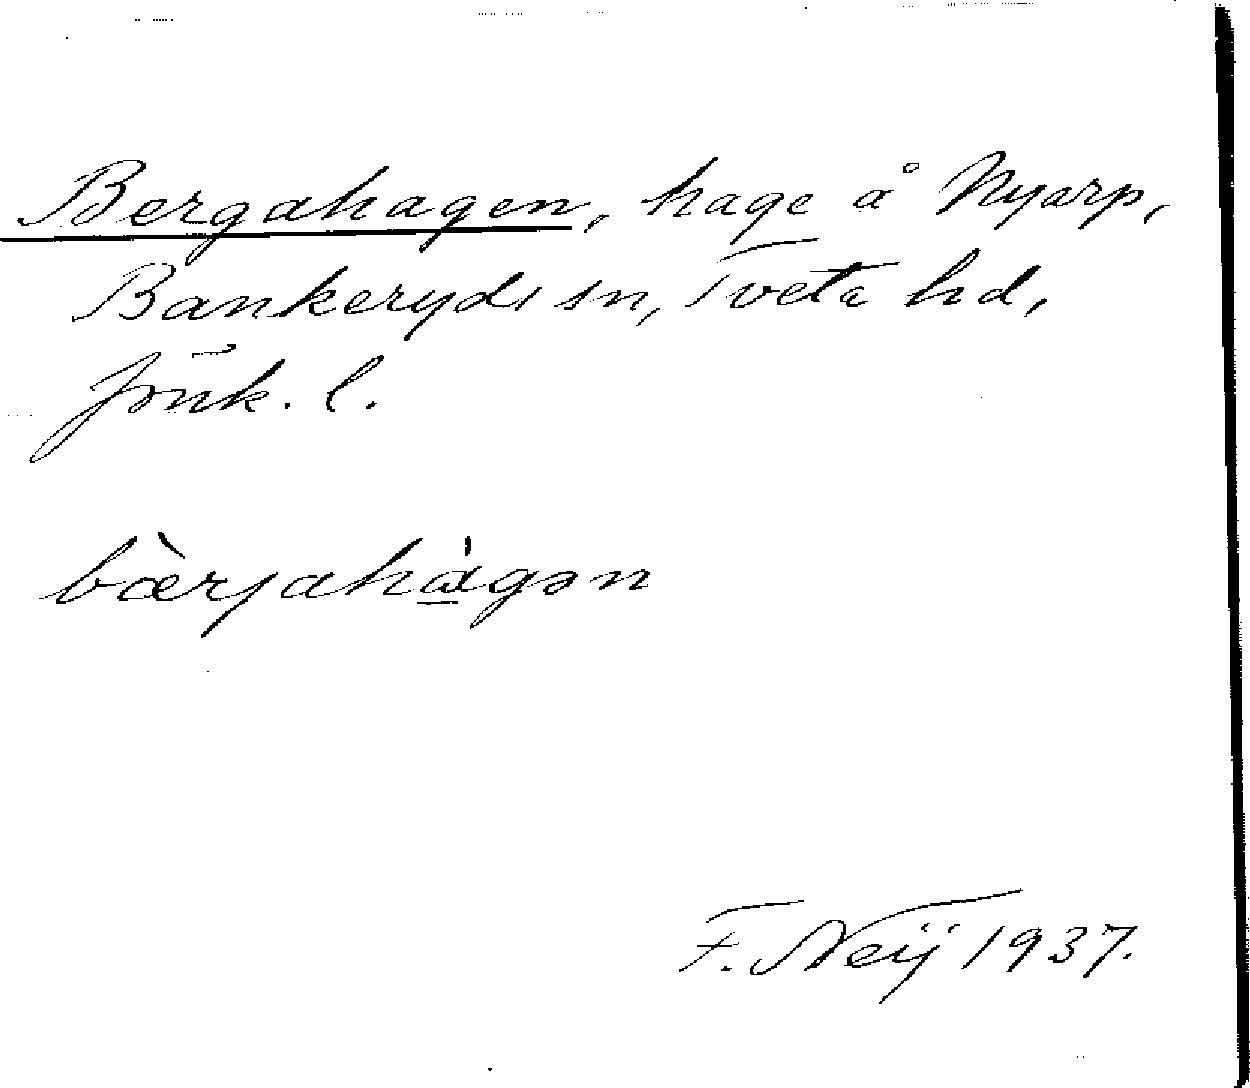 Bergahagen, hage å Nyarp,
Bankeryds sn, Tveta hd,
Jönk. l.
bæ̀rjahàgən
F. Neij 1937.